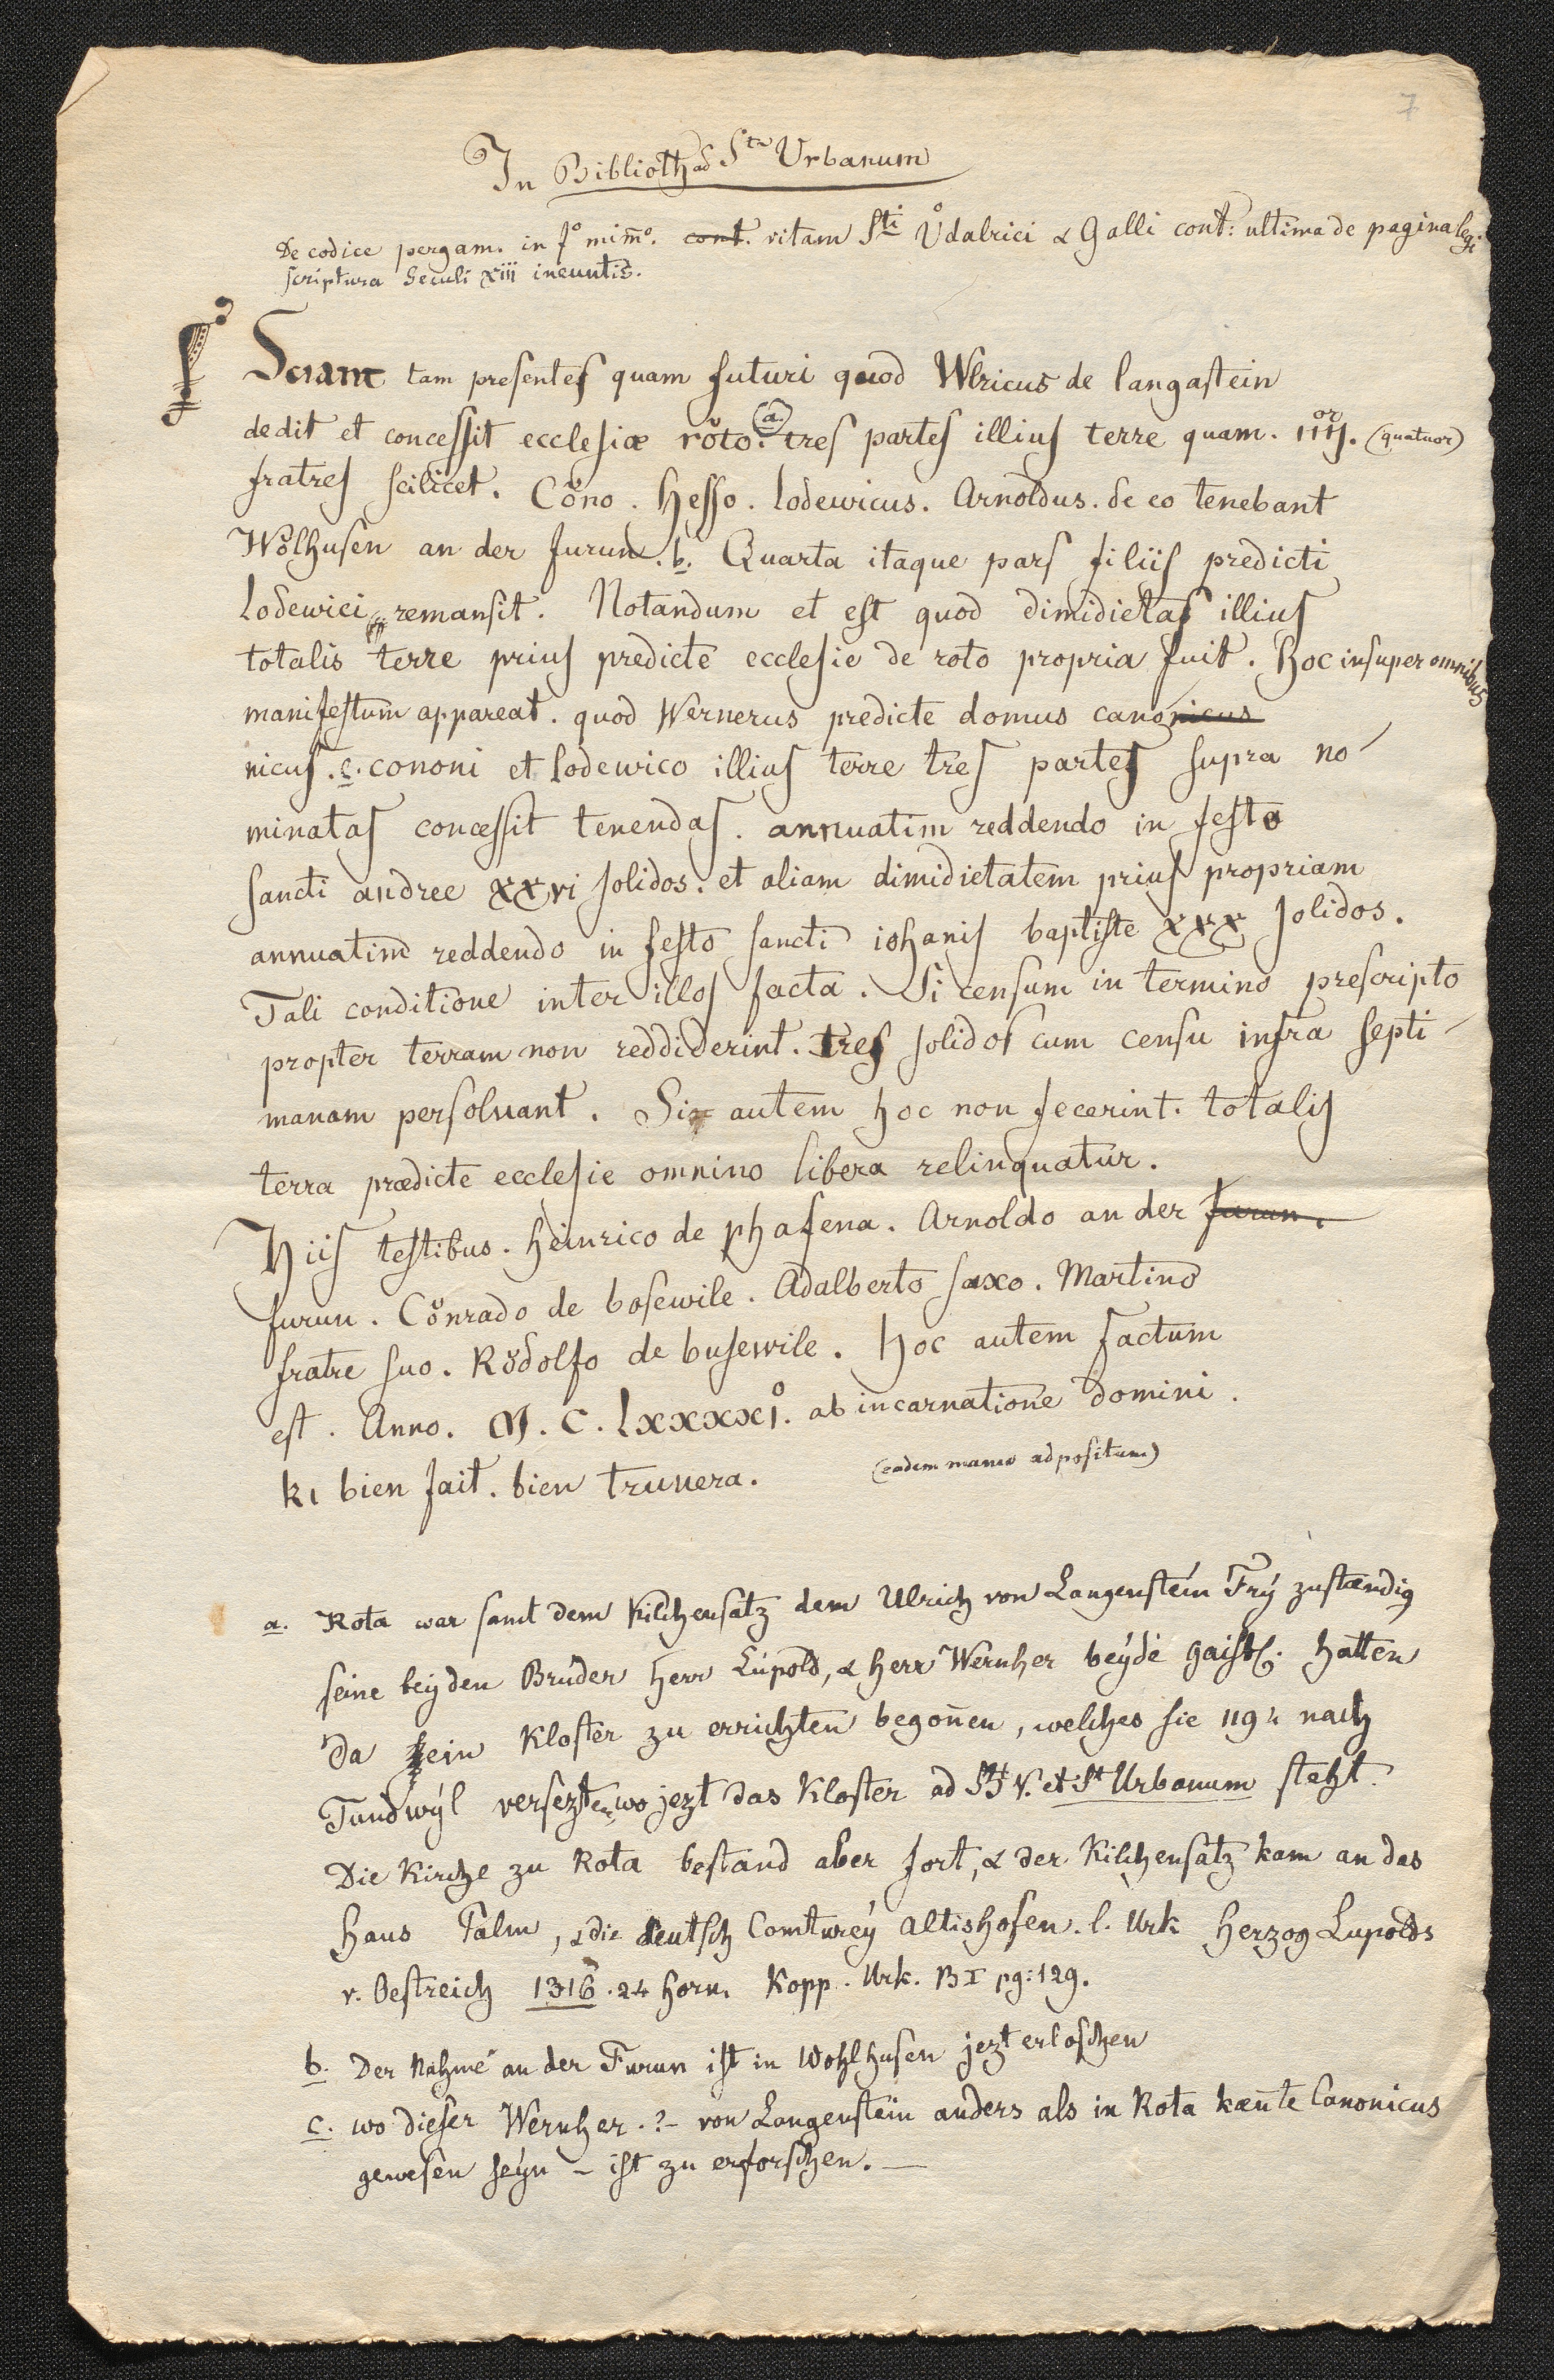 7
In Biblioth ad Stm Urbanum
De codice pergam. in fo mim̄o. cont. vitam Sti Ůdalrici & Galli cont: ultima de pagina legi
scriptura Seculi xiii ineuntis.
Sciant tam presentes quam futuri quod Wlricus de langastein
dedit et concessit ecclesiæ rŏto. (a.) tres partes illius terre quam. IIIJor. (quatuor)
fratres scilicet. Cŏno. Hesso. lodewicus. Arnoldus. de eo tenebant
Wŏlhusen an der furun. b. Quarta itaque pars filiis predicti
lodewici remansit. Notandum et est quod dimidietas illius
totalis terre prius predicte ecclesie de roto propria fuit. Hoc insuper omnibus
manifestum appareat. quod Wernerus predicte domus canonicus
nicus. c. cononi et lodewico illius terre tres partes supra no-
minatas concessit tenendas. annuatim reddendo in festo
sancti andree xxvi solidos. et aliam dimidietatem prius propriam
annuatim reddendo in festo sancti iohanis baptiste xxx solidos.
Tali conditione inter illos facta. Si censum in termino prescripto
propter terram non reddiderint. tres solidos cum censu infra septi-
manam persolvant. Si autem hoc non fecerint. totalis
terra prædicte ecclesie omnino libera relinquatur.
Hiis testibus. Heinrico de phafena. Arnoldo an der furun.
furun. Cŏnrado de bosewile. Adalberto saxo. Martino
fratre suo. Rŏdolfo de busewile. Hoc autem factum
est. Anno. M. C. LXXXXI°. ab incarnatione domini.
ki bien fait. bien truvera. (eadem manu adpositum)
a. Rota war samt dem Kilchensatz dem Ulrich von Langenstein Frÿ zustændig
seine beyden Brüder Herr Lüpold, & Herr Wernher beyde gaistl. hatten
da ein Kloster zu errichten begon̄en, welches sie 1194 nach
Tundwÿl versezten, wo jezt das Kloster ad St V. et St Urbanum steht.
Die Kirche zu Rota bestand aber fort, & der Kilchensatz kam an das
Haus Palm, & die deutsch Comturey Altishofen. l. Urk Herzog Lupolds
v. Oestreich 1316. 24 Horn. Kopp. Urk. B I pg: 129.
b. Der Nahme an der Furun ist in Wohlhusen jezt erloschen
c. wo dieser Wernher. ?- von Langenstein anders als in Rota kæn̄te Canonicus
gewesen seyn - ist zu erforschen. -